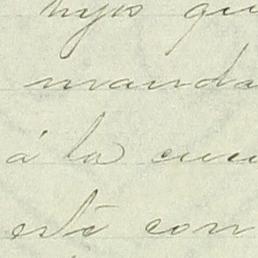 hijos qu
manda
á la cu
esté con